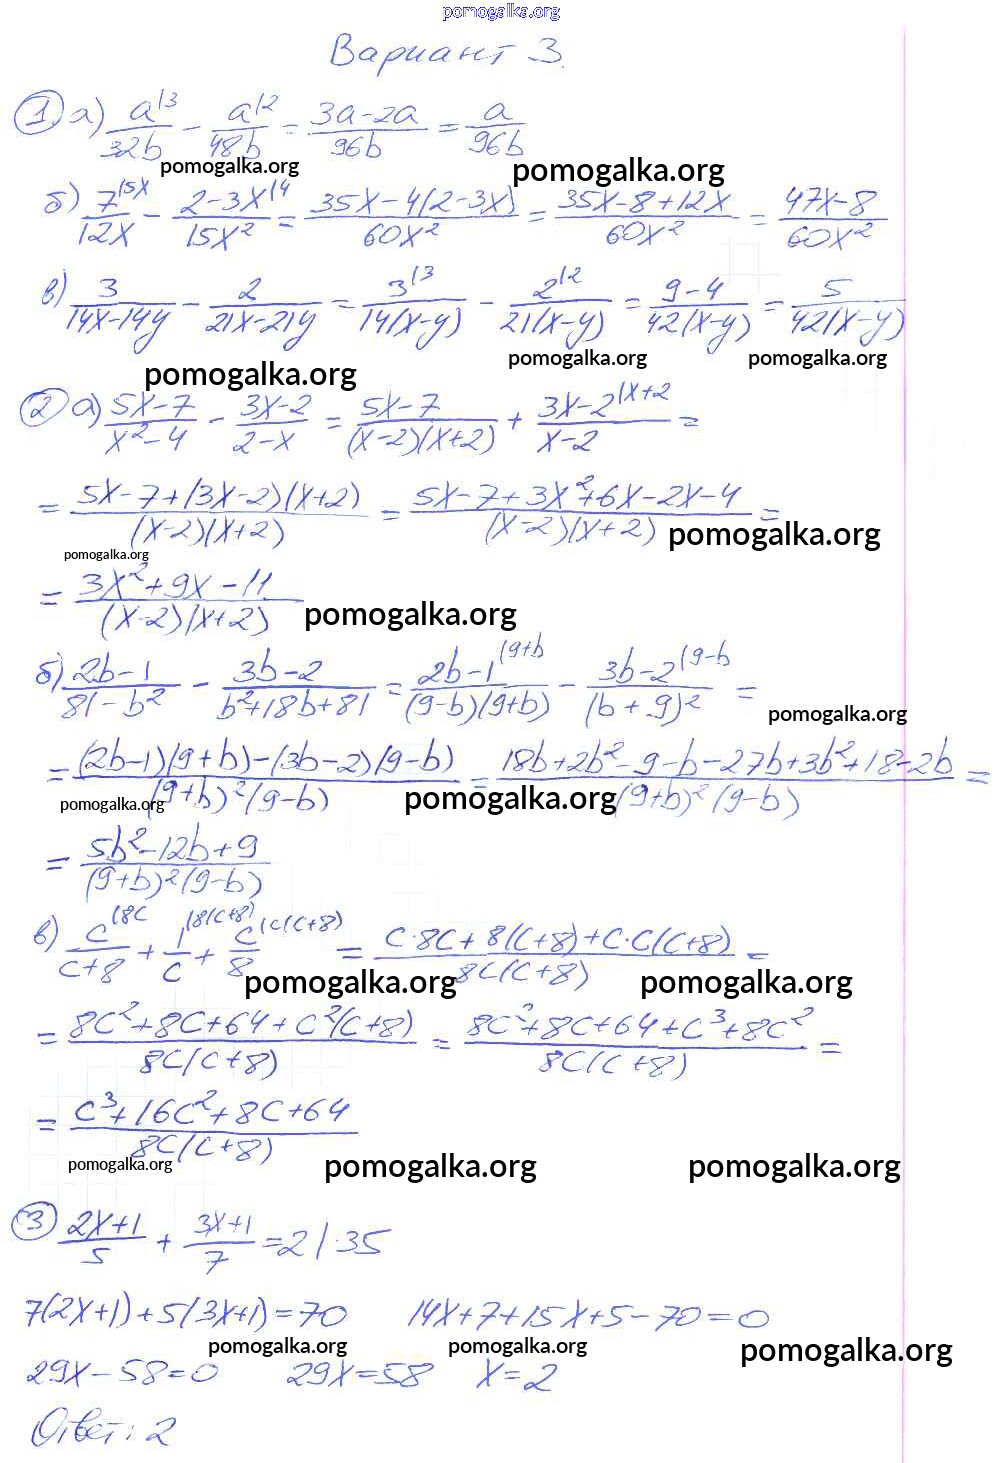 pomogalka.org
Вариант 3.
① а) a^{|3}/32b − a^{|2}/48b = (3a−2a)/96b = a/96b
pomogalka.org pomogalka.org
б) 7^{|5x}/12x − (2−3x^{|4})/15x² = (35x−4(2−3x))/60x² = (35x−8+12x)/60x² = (47x−8)/60x²
в) 3/(14x−14y) − 2/(21x−21y) = 3^{|3}/14(x−y) − 2^{|2}/21(x−y) = (9−4)/42(x−y) = 5/42(x−y)
pomogalka.org pomogalka.org
pomogalka.org
② а) (5x−7)/(x²−4) − (3x−2)/(2−x) = (5x−7)/(x−2)(x+2) + (3x−2^{|x+2})/(x−2) =
= (5x−7+(3x−2)(x+2))/(x−2)(x+2) = (5x−7+3x²+6x−2x−4)/(x−2)(x+2) =
pomogalka.org pomogalka.org
= (3x²+9x−11)/(x−2)(x+2)
pomogalka.org
б) (2b−1)/(81−b²) − (3b−2)/(b²+18b+81) = (2b−1^{|9+b})/(9−b)(9+b) − (3b−2^{|9−b})/(b+9)² =
pomogalka.org
= ((2b−1)(9+b)−(3b−2)(9−b))/(9+b)²(9−b) = (18b+2b²−9−b−27b+3b²+18−2b)/(9+b)²(9−b) =
pomogalka.org pomogalka.org
= (5b²−12b+9)/(9+b)²(9−b)
в) c^{|8c}/(c+8) + 1^{|8(c+8)}/c + c^{|c(c+8)}/8 = (c·8c+8(c+8)+c·c(c+8))/8c(c+8) =
pomogalka.org pomogalka.org
= (8c²+8c+64+c²(c+8))/8c(c+8) = (8c²+8c+64+c³+8c²)/8c(c+8) =
= (c³+16c²+8c+64)/8c(c+8)
pomogalka.org pomogalka.org pomogalka.org
③ (2x+1)/5 + (3x+1)/7 = 2 |·35
7(2x+1)+5(3x+1)=70 14x+7+15x+5−70=0
pomogalka.org pomogalka.org pomogalka.org
29x−58=0 29x=58 x=2
Ответ: 2